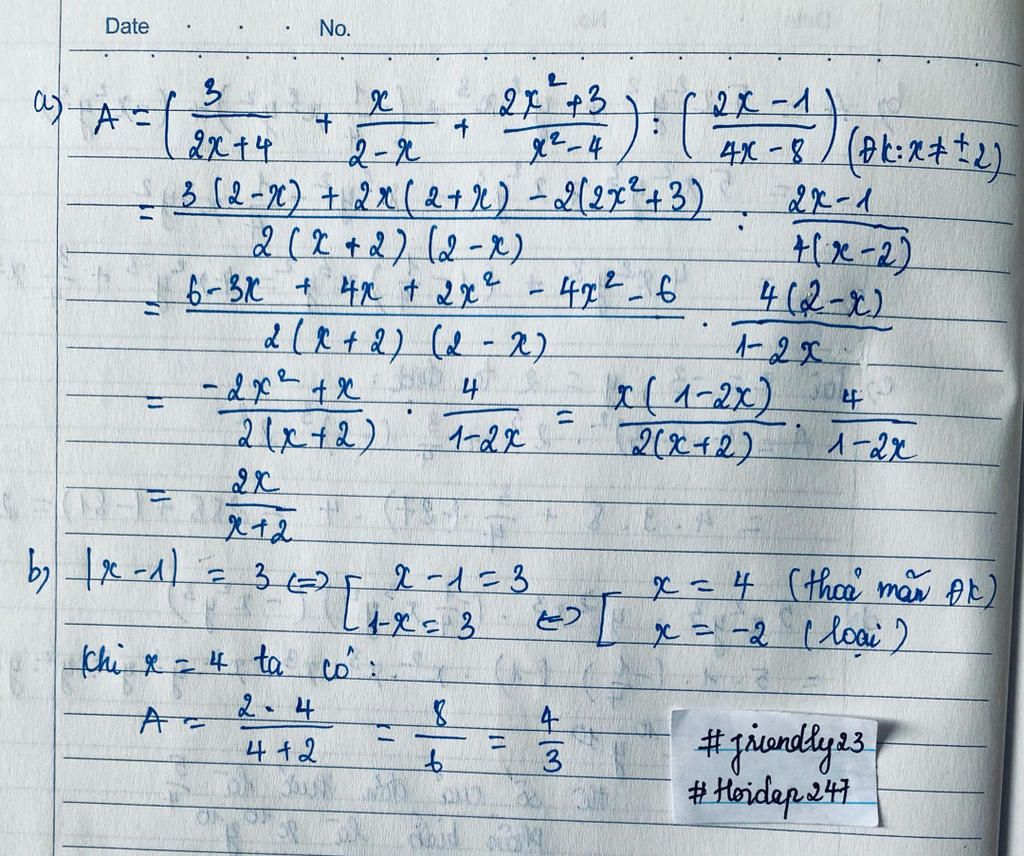 Date . . . No.
a) A = ( 3/(2x+4) + x/(2-x) + (2x²+3)/(x²-4) ) : ( (2x-1)/(4x-8) ) (ĐK: x ≠ ±2)
= (3(2-x) + 2x(2+x) - 2(2x²+3))/(2(x+2)(2-x)) : (2x-1)/(4(x-2))
= (6-3x + 4x + 2x² - 4x² - 6)/(2(x+2)(2-x)) . (4(2-x))/(1-2x)
= (-2x² + x)/(2(x+2)) . 4/(1-2x) = (x(1-2x))/(2(x+2)) . 4/(1-2x)
= 2x/(x+2)
b) |x-1| = 3 <=> [ x-1=3 <=> [ x = 4 (thoả mãn ĐK)
1-x=3 x = -2 (loại)
Khi x = 4 ta có:
A = (2.4)/(4+2) = 8/6 = 4/3
#friendly23
#Hoidap247